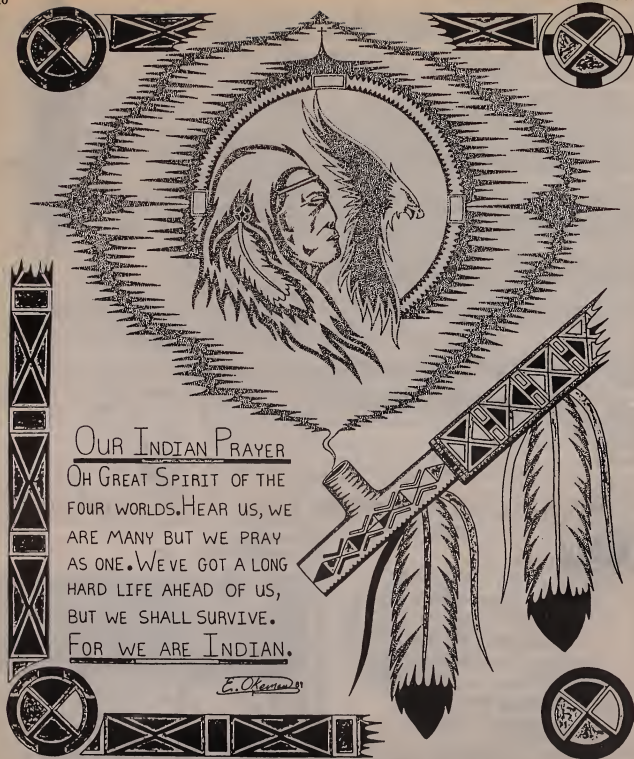 OUR INDIAN PRAYER
OH GREAT SPIRIT OF THE
FOUR WORLDS. HEAR US, WE
ARE MANY BUT WE PRAY
AS ONE. WEVE GOT A LONG
HARD LIFE AHEAD OF US,
BUT WE SHALL SURVIVE.
FOR WE ARE INDIAN.